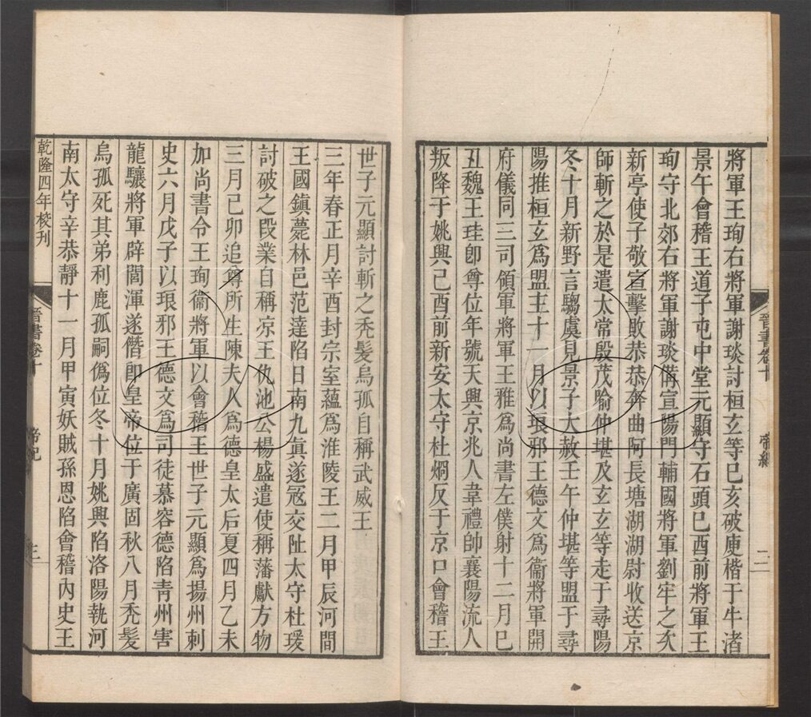 將軍王珣右將軍謝琰討桓玄等己亥破庾楷于牛渚
景午會稽王道子屯中堂元顯守石頭己酉前將軍王
珣守北郊右將軍謝琰備宣陽門輔國將軍劉牢之次
新亭使子敬宣擊敗恭恭奔曲阿長塘湖湖尉收送京
師斬之於是遣太常殷茂喻仲堪及玄玄等走于尋陽
冬十月新野言騶虞見景子大赦壬午仲堪等盟于尋
陽推桓玄爲盟主十一月以琅邪王德文爲衞將軍開
府儀同三司領軍將軍王雅爲尚書左僕射十二月己
丑魏王珪卽尊位年號天興京兆人韋禮帥襄陽流人
叛降于姚興己酉前新安太守杜烱反于京口會稽王
晉書卷十 帝紀 二
世子元顯討斬之禿髮烏孤自稱武威王
三年春正月辛酉封宗室蘊爲淮陵王二月甲辰河間
王國鎮薨林邑范達陷日南九眞遂寇交阯太守杜瑗
討破之段業自稱涼王仇池公楊盛遣使稱藩獻方物
三月己卯追尊所生陳夫人爲德皇太后夏四月乙未
加尚書令王珣衞將軍以會稽王世子元顯爲揚州刺
史六月戊子以琅邪王德文爲司徒慕容德陷青州害
龍驤將軍辟閭渾遂僭卽皇帝位于廣固秋八月禿髮
烏孤死其弟利鹿孤嗣僞位冬十月姚興陷洛陽執河
南太守辛恭靜十一月甲寅妖賊孫恩陷會稽內史王
乾隆四年校刊 晉書卷十 帝紀 三